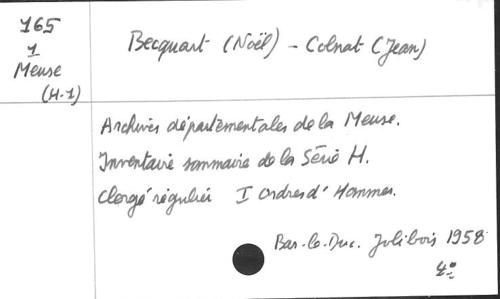 165
1
Meuse
(H.1)
Becquart (Noël) - Colnat (Jean)
Archives départementales de la Meuse.
Inventaire sommaire de la Série H.
Clergé régulier I Ordres d'Hommes.
Bar-le-Duc. Jolibois 1958
4°